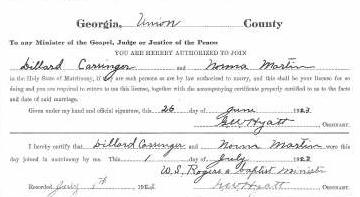 Georgia, Union County
To any Minister of the Gospel, Judge or Justice of the Peace
YOU ARE HEREBY AUTHORIZED TO JOIN
Dillard Cassinger and Norma Martin
in the Holy State of Matrimony, if they are such persons as are by law authorized to marry, and this shall be your license for so
doing and you are required to return to us this license, together with the accompanying certificate properly certified to us to the facts
and date of said marriage.
Given under my hand and official signature, this 26 day of June 1923
G W Hyatt, ORDINARY.
I hereby certify that Dillard Cassinger and Norma Martin were this
day joined in matrimony by me. This 1 day of July 1923
W. S. Rogers a baptist Minister
Recorded July 1923 G W Hyatt, ORDINARY.